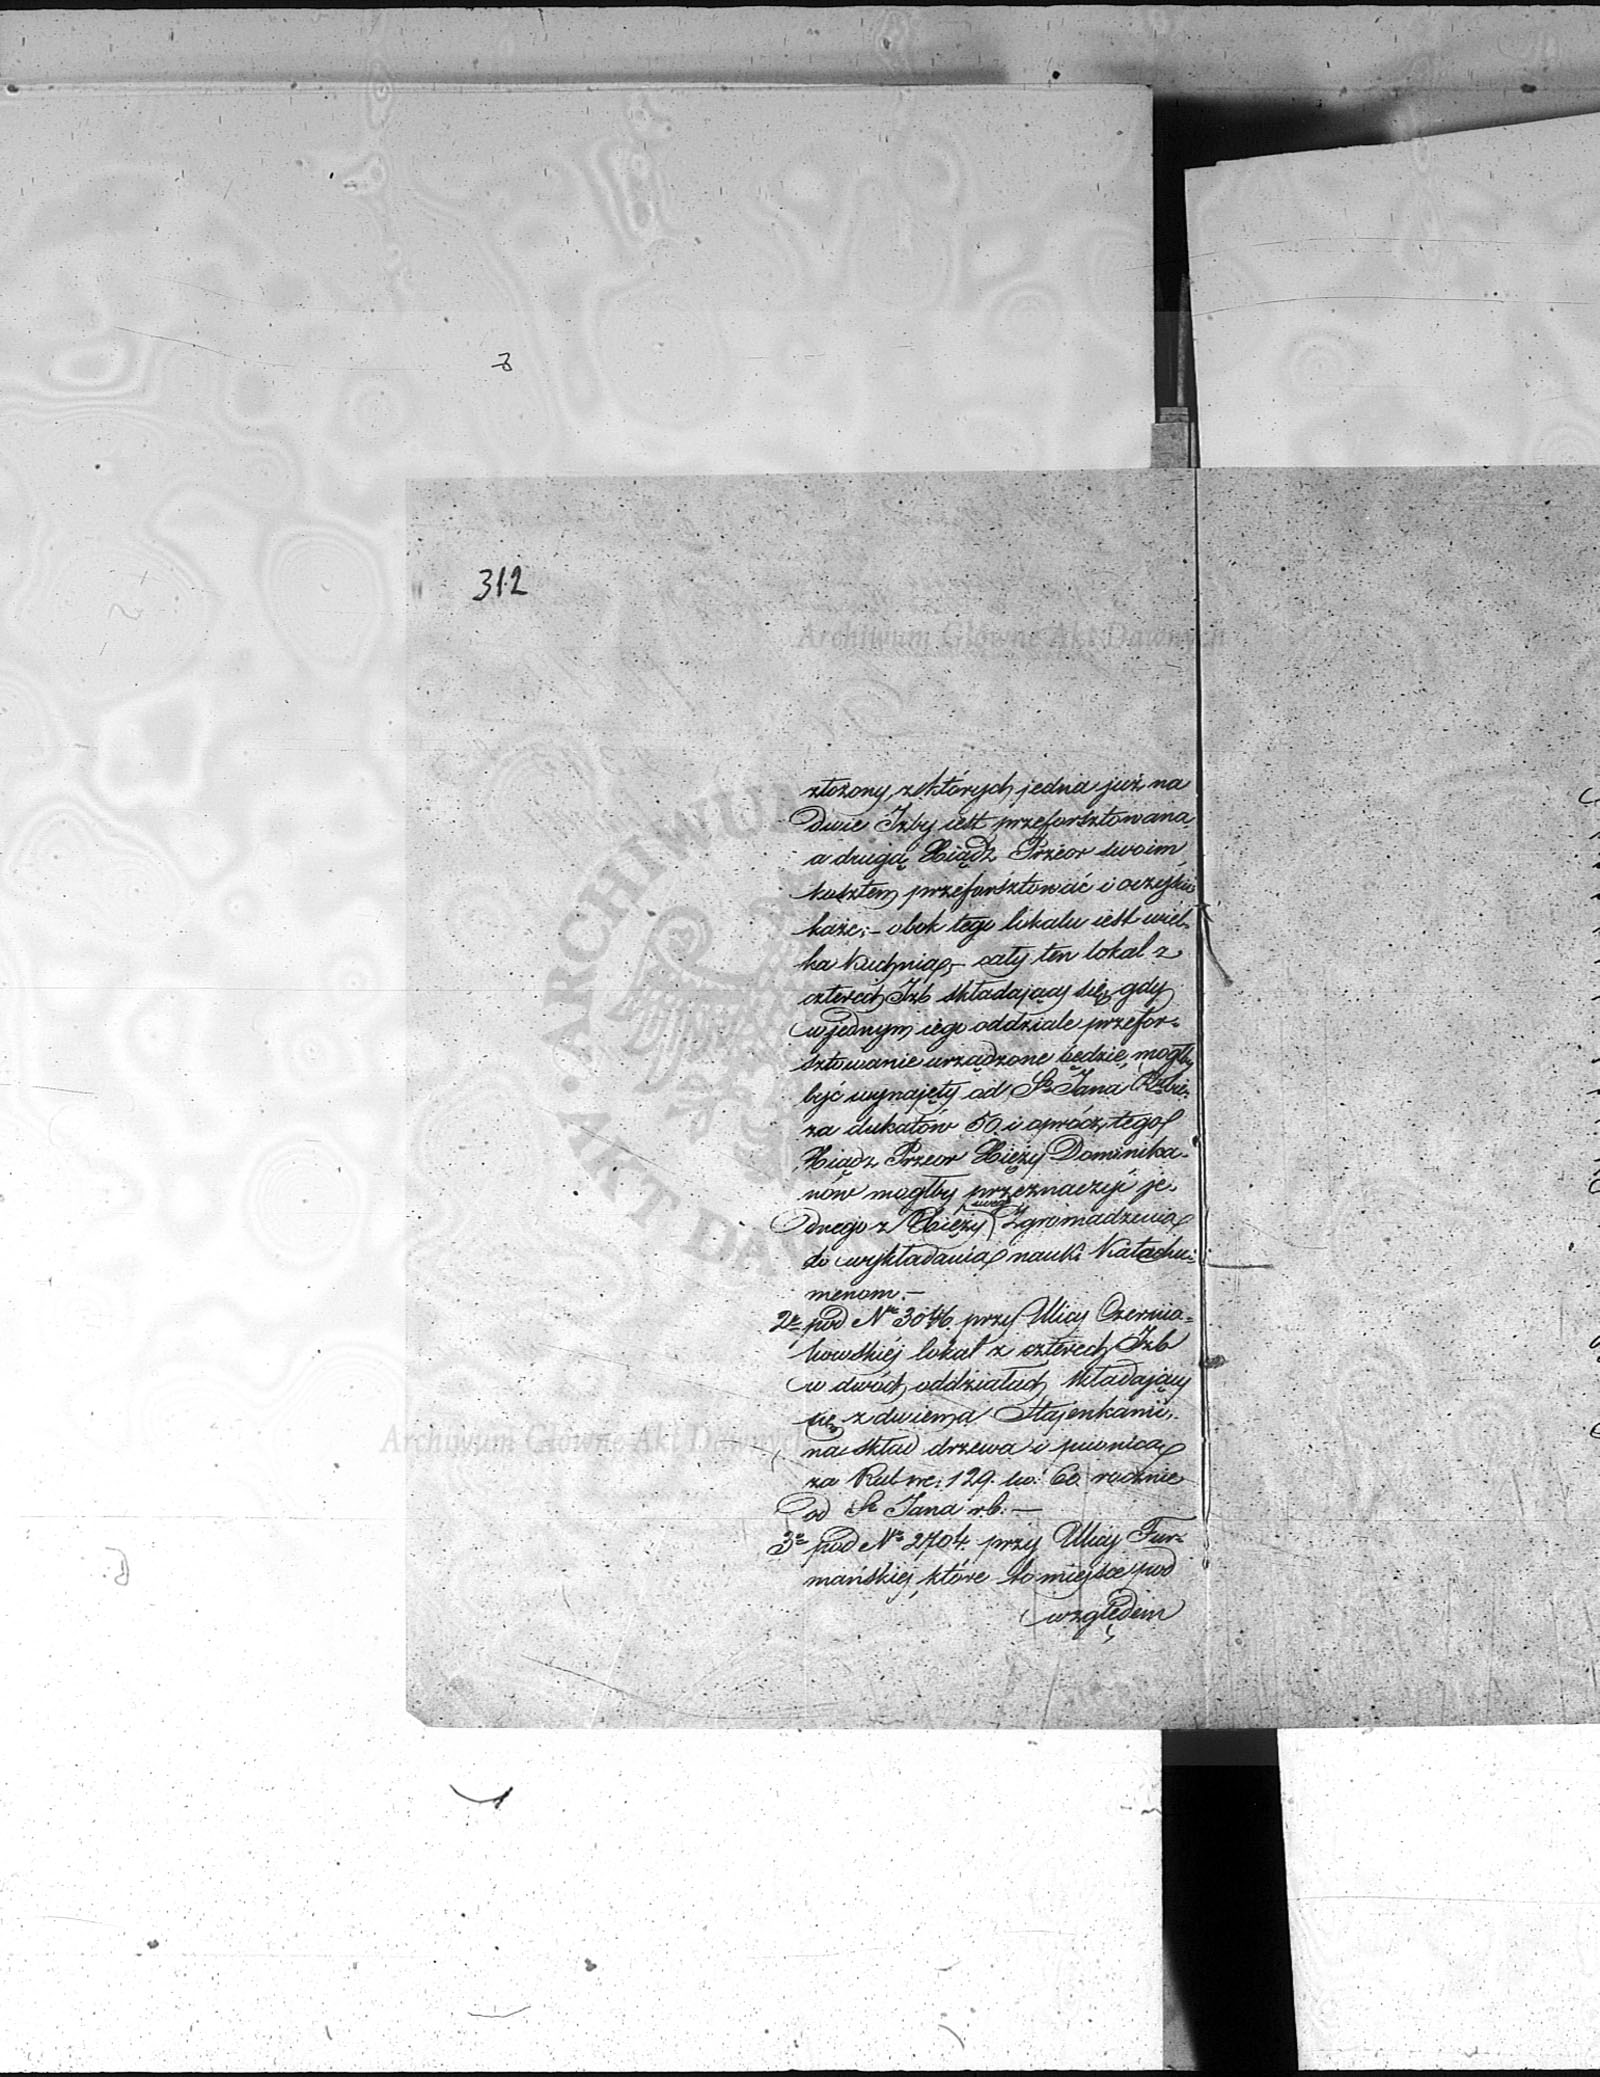 312
Archiwum Główne Akt Dawnych
złożony, z których jedna już na
dwie Izby iest przeforsztowana
a drugą Xiądz Przeor swoim
kosztem przeforsztować i oczyścić
każe; – obok tego lokalu iest wiel-
ka kuchnia, – cały ten lokal z
czterech Izb składaiący się, gdy
w jednym iego oddziale przefor-
sztowanie urządzone będzie, mogłby
być wynajęty od St. Jana
za dukatów 50. i oprócz tego
Xiądz Przeor Xięży Dominika-
nów mogłby przeznaczyć je-
dnego z Xięży swego Zgromadzenia
do wykładania nauki Katechu-
menom. –
2e pod No 3046. przy Ulicy Czernia-
kowskiéj lokal z czterech Izb
w dwóch oddziałach składający
się z dwiema Stajenkami,
na skład drzewa i piwnicą
za Rub. sre: 129. ko: 60. rocznie
od St. Jana r.b. –
3e pod No 2704. przy Ulicy Fur-
mańskiej, które to miejsce pod
względem
Archiwum Główne Akt Dawnych
ARCHIWUM
AKT DA